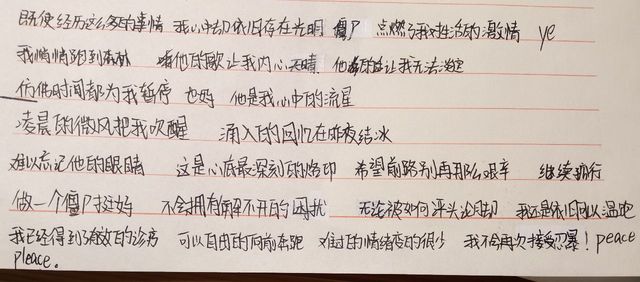 既使经历这么多的事情 我心中却依旧存在光明 僵尸 点燃了我对生活的激情 ye
我悄悄跑到森林 他的歌让我内心 让我无法淡定
仿佛时间都为我暂停 也好 他是我心中的流星
凌晨的微风把我吹醒 涌入的回忆在昨夜结冰
难以忘记他的眼睛 这是心底最深刻的烙印 希望前路别再那么艰辛 继续前行
做一个僵尸挺好 不会拥有解不开的困扰 无论被如何评头论足 我还是依旧可以温跑
我已经得到有效的诊疗 可以自由的向前奔跑 难过的情绪变的很少 我不会再次接受忍暴！peace
pleace.